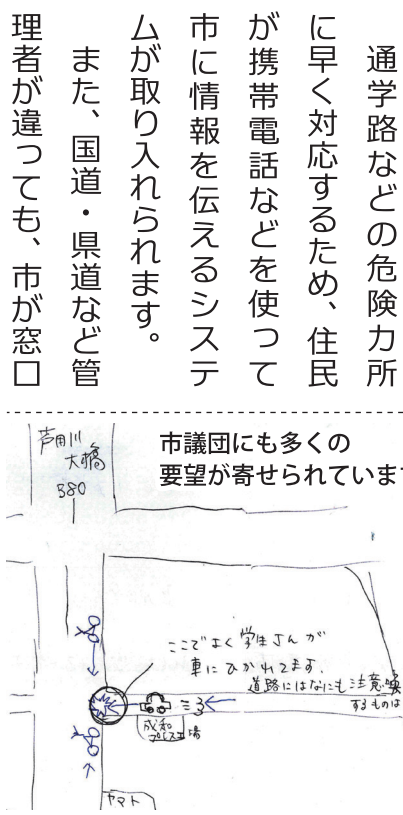 通学路などの危険カ所
に早く対応するため、住民
が携帯電話などを使って
市に情報を伝えるシステ
ムが取り入れられます。
また、国道・県道など管
理者が違っても、市が窓口
市議団にも多くの
要望が寄せられています
芦田川
大橋
380
ここでよく学生さんが
車にひかれてます.
道路にはなにも注意喚
するものは
成和
プレス工場
ヤマト